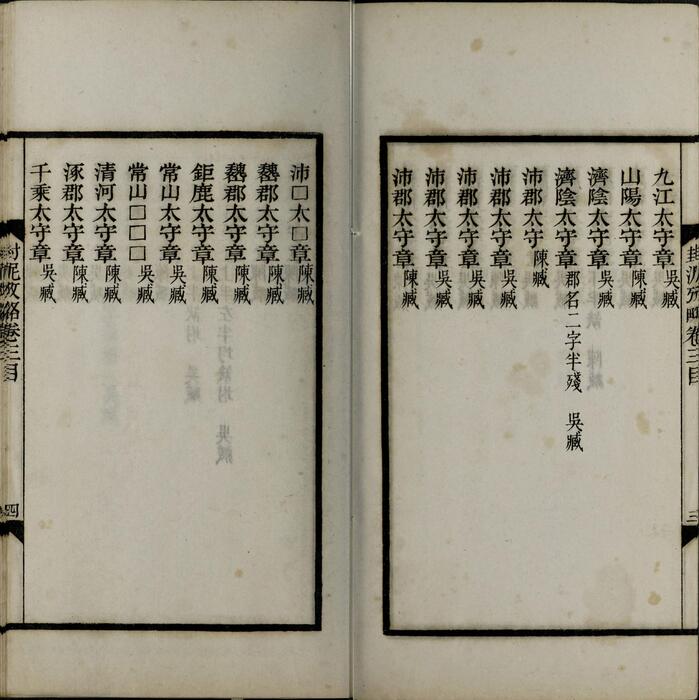 九江太守章 吳臧
山陽太守章 陳臧
濟陰太守章 吳臧
濟陰太守章 郡名二字半殘 吳臧
沛郡太守 陳臧
沛郡太守章 吳臧
沛郡太守章 陳臧
沛郡太守章 吳臧
沛郡太守章 陳臧
封泥攷略卷三目 三
沛□太□章 陳臧
魏郡太守章 吳臧
魏郡太守章 陳臧
鉅鹿太守章 陳臧
常山太守章 吳臧
常山□□□ 吳臧
清河太守章 陳臧
涿郡太守章 陳臧
千乘太守章 吳臧
封泥攷略卷三目 四